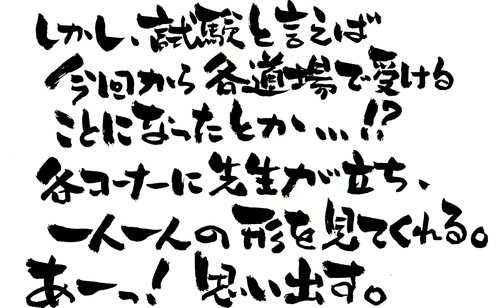 しかし、試験と言えば
今回から各道場で受ける
ことになったとか、、、!?
各コーナーに先生が立ち、
一人一人の形を見てくれる。
あーっ！思い出す。